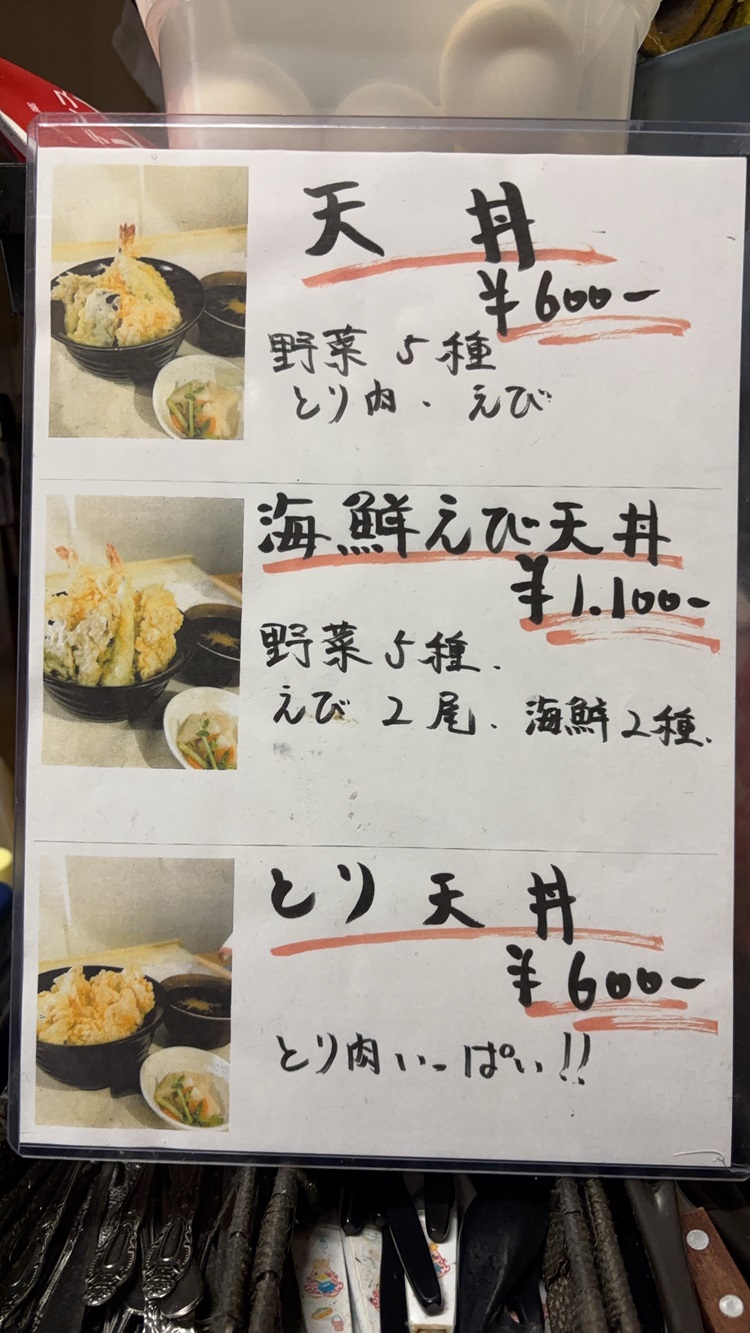 天丼
¥600-
野菜5種
とり肉、えび
海鮮えび天丼
¥1.100-
野菜5種、
えび2尾、海鮮2種、
とり天丼
¥600-
とり肉いっぱい!!